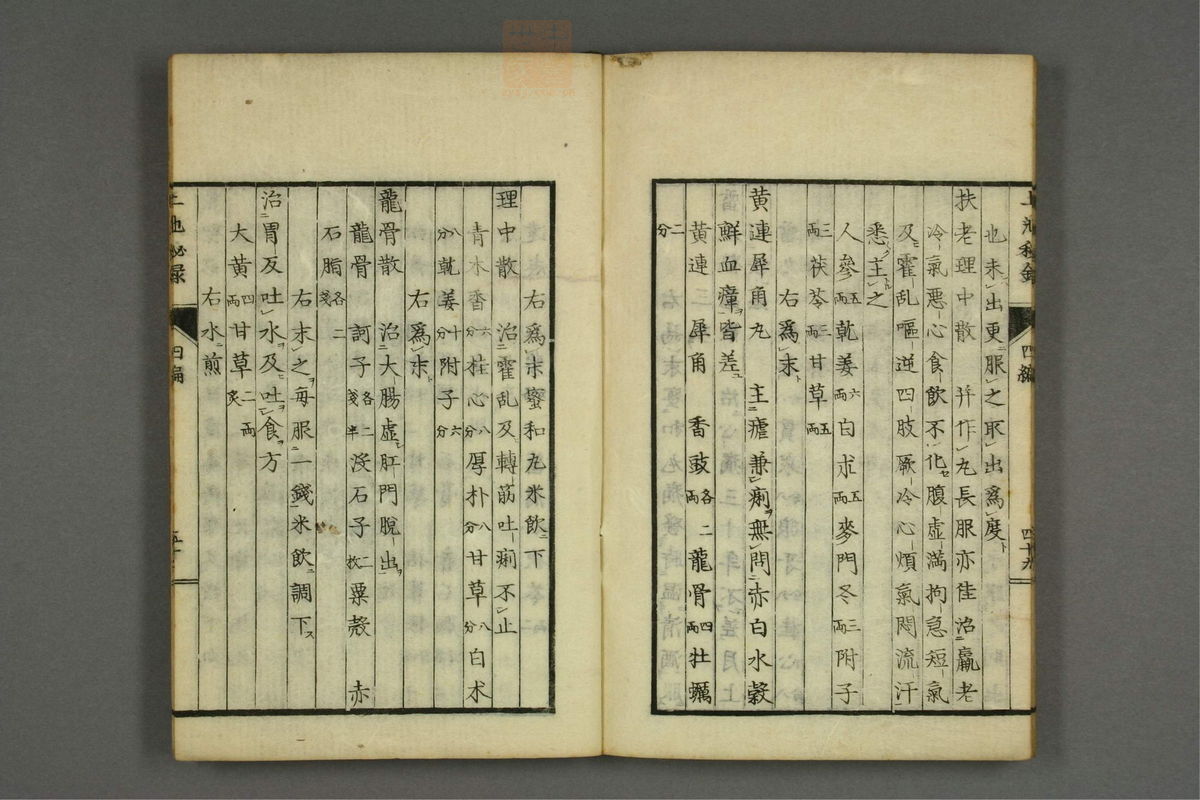 也未出更服之取出爲度
扶老理中散 并作丸長服亦佳治羸老
冷氣惡心食飲不化腹虚滿拘急短氣
及霍乱嘔逆四肢厥冷心煩氣悶流汗
悉主之
人參五兩乾姜六兩白朮五兩麥門冬三兩附子
三兩茯苓三兩甘草五兩
右爲末
黄連犀角丸 主瘧兼痢無問赤白水穀
鮮血瘴皆差
黄連三 犀角 香豉各二兩龍骨四兩牡蠣
二分
四編
四十九
右爲末蜜和丸米飲下
理中散 治霍乱及轉筋吐痢不止
青木香六分桂心八分厚朴八分甘草八分白朮
八分乾姜十分附子六分
右爲末
龍骨散 治大腸虚肛門脱出
龍骨 訶子各二戔半沒石子二枚粟殼 赤
石脂各二戔
右末之毎服一錢米飲調下
治胃反吐水及吐食方
大黄四兩甘草二兩炙
右水煎
四編
五十